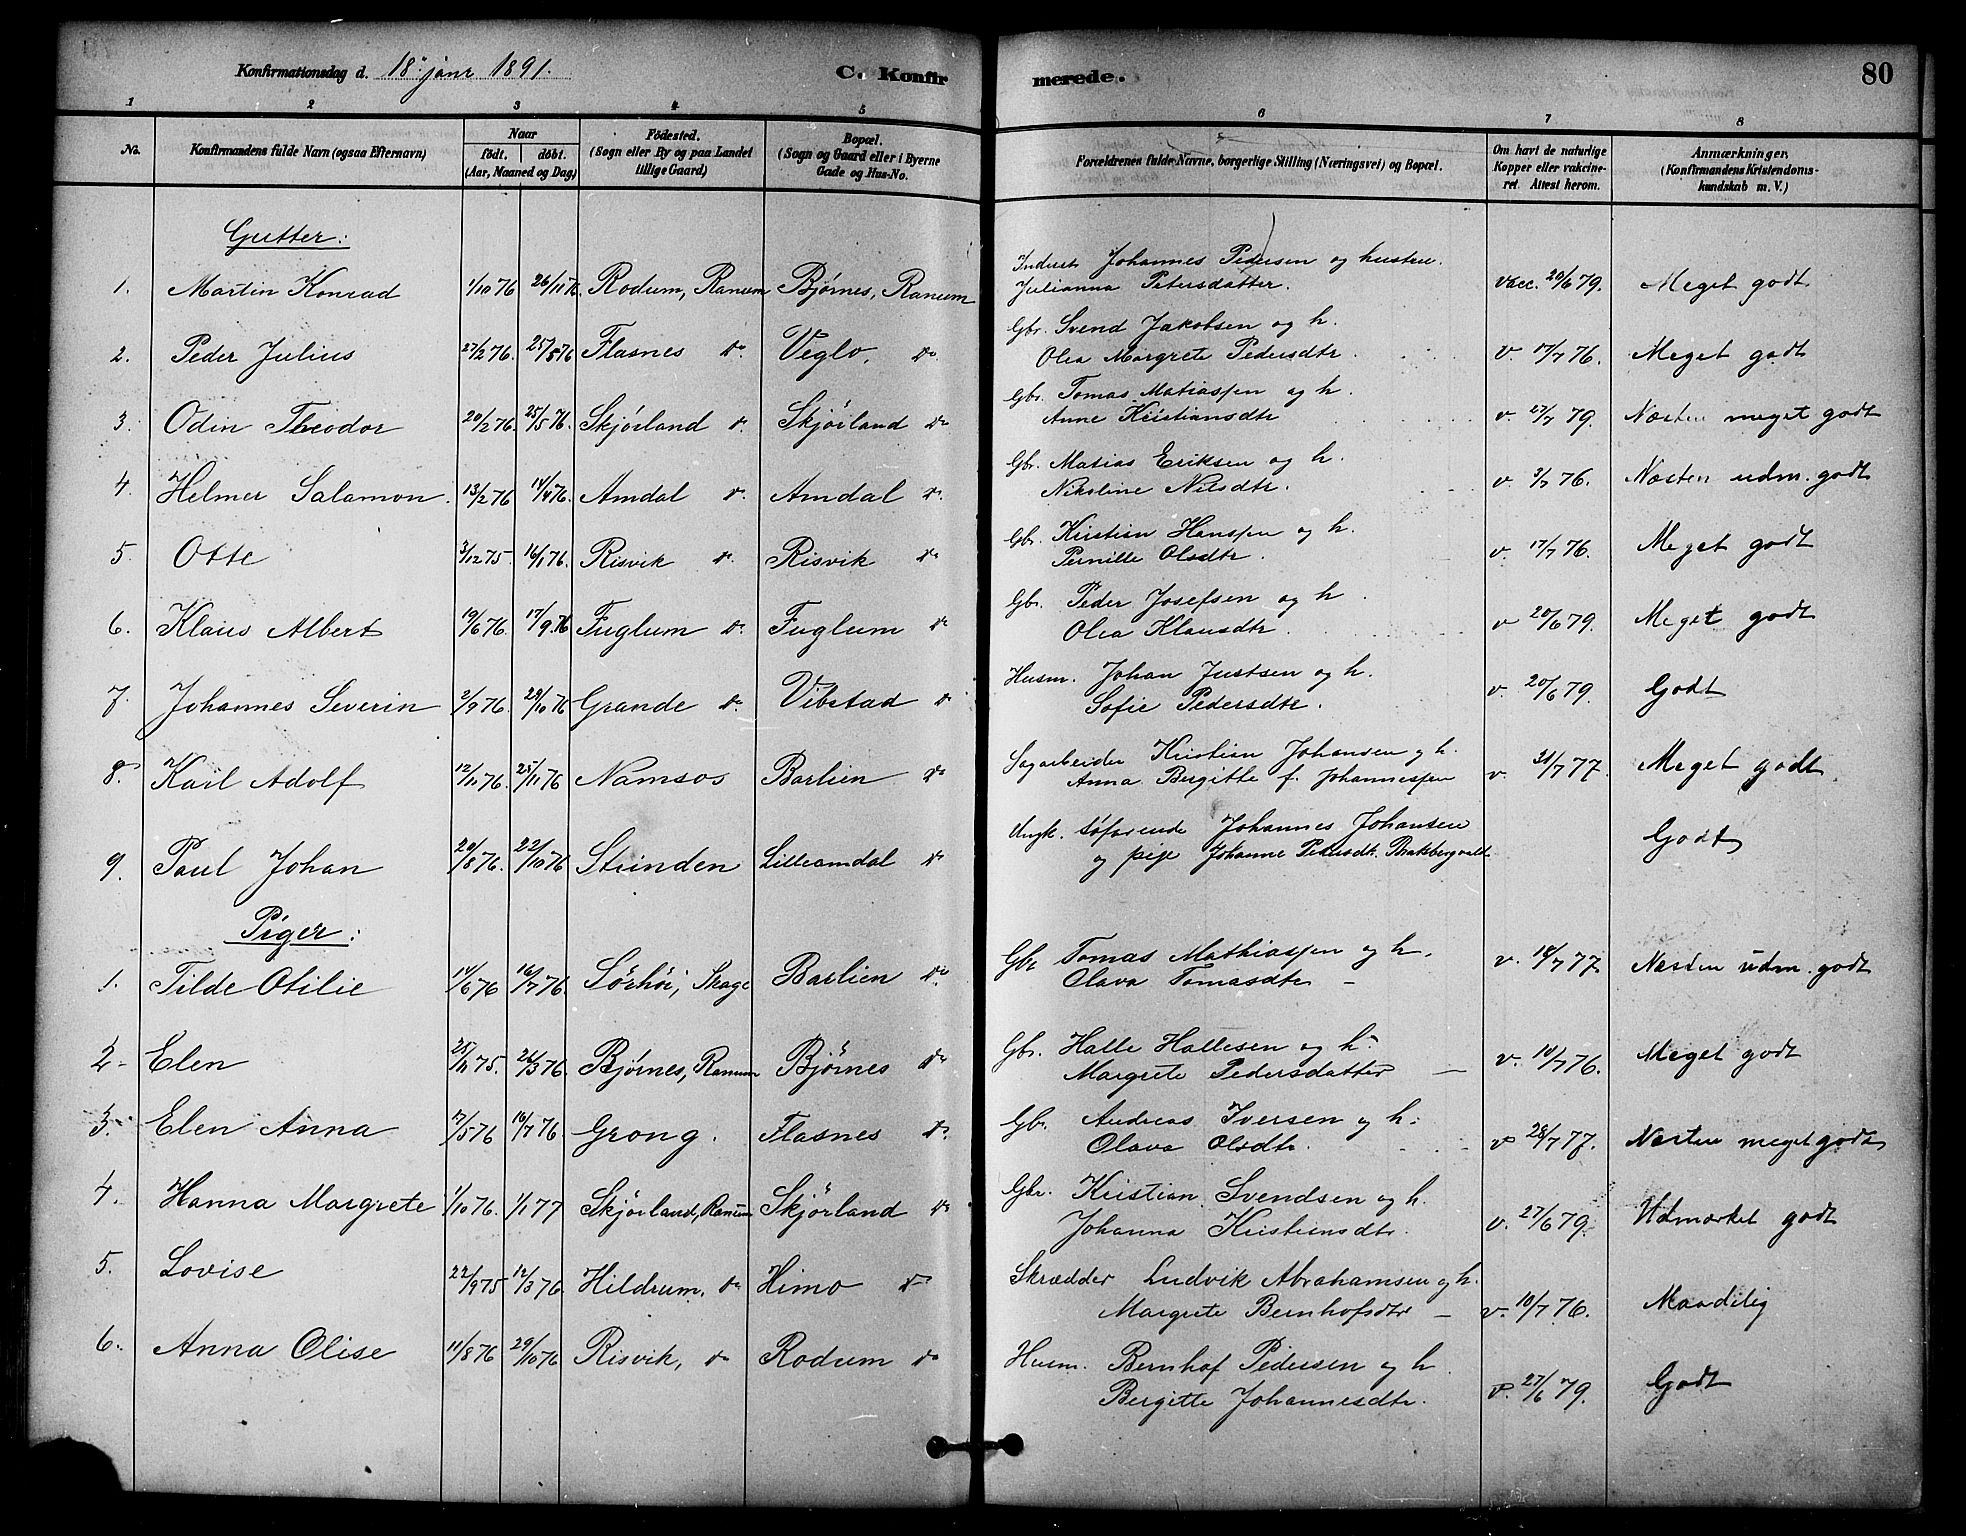 Konfirmationsdag d. 18de janr 1891. C. Konfirmerede. 80
1 2 3 4 5 6 7 8
No. Konfirmandens fulde Navn (ogsaa Efternavn) Naar født. døbt. (Aar, Maaned og Dag) Fødested. (Sogn eller By og paa Landet tillige Gaard) Bopæl. (Sogn og Gaard eller i Byerne Gade og Hus-No. Forældrenes fulde Navne, borgerlige Stilling (Næringsvei) og Bopæl. Om havt de naturlige Kopper eller vakcineret. Attest herom. Anmærkninger. (Konfirmandens Kristendomskundskab m. V.)
Gutter:
1. Martin Konrad 1/10 76 26/11 76. Rodum, Ranum Bjørnes, Ranum Inderst Johannes Pedersen og hustru Julianna Petersdatter. vacc. 20/6 79. Meget godt
2. Peder Julius 27/2 76. 25/5 76 Flasnes do. Veglo, do. Gbr. Svend Jakobsen og h. Olea Margrete Pedersdtr. v 17/7 76. Meget godt
3. Odin Theodor 20/2 76. 25/5 76. Skjørland do. Skjørland do Gbr. Tomas Matiassen og h. Anne Kristiansdtr v. 27/7 79. Næsten meget godt
4. Helmer Salamon. 13/2 76 14/4 76. Amdal do. Amdal do. Gbr. Matias Eriksen og h. Nikoline Nilsdtr. v. 3/7 76. Næsten udm. godt
5. Otte 3/12 75. 16/1 76. Risvik do. Risvik do Gbr. Kristian Hanssen og h. Pernille Olsdtr. v. 17/7 76. Meget godt
6. Klaus Albert 19/6 76. 17/9 76 Fuglum do. Fuglum do Gbr. Peder Josefsen og h. Olea Klausdtr. v 20/6 79. Meget godt
7. Johannes Severin 2/9 76. 29/10 76 Grande do. Vibstad do Husm. Johan Justsen og h. Sofie Pedersdtr. v. 20/6 79. Godt
8. Karl Adolf 12/11 76. 25/11 76 Namsos Barlien do Sagarbeider Kristian Johansen og h. Anna Bergitte f. Johannessen v. 31/7 77. Meget godt
9. Paul Johan 20/8 76. 22/10 76 Strinden Lilleamdal do Ungk. søfarende Johannes Johansen og pige Johanne Pedersdtr. Godt
Piger:
1. Tilde Otilie 14/6 76 16/7 76. Sørhøi, Skage Barlien do. Gbr Tomas Mathiassen og h. Olava Tomasdtr — v. 18/7 77 Næsten udm. godt
2 - Elen 25/11 75. 26/3 76. Bjørnes, Ranum Bjørnes do Gbr. Halle Hallesen og h. Margrete Pedersdatter — v. 10/7 76. Meget godt
3. Elen Anna 17/5 76 16/7 76. Grong. Flasnes do. Gbr. Andreas Iversen og h. Olava Olsdtr. v 28/7 77. Næsten meget godt
4. Hanna Margrete 1/10 76. 1/1 77 Skjørland, Ranum Skjørland do Gbr. Kristian Svendsen og h. Johanna Kristiansdtr. v. 27/6 79. Udmærket godt
5. Lovise 22/9 75 12/3 76. Hildrum, do Himo do Skrædder Ludvik Abrahamsen og h. Margrete Bernhofsdtr — v. 10/7 76. Maadelig
6. Anna Olise 11/8 76 29/10 76 Risvik, do Rodum do Husm. Bernhof Pedersen og h Bergitte Johannesdtr. v. 27/6 79. Godt